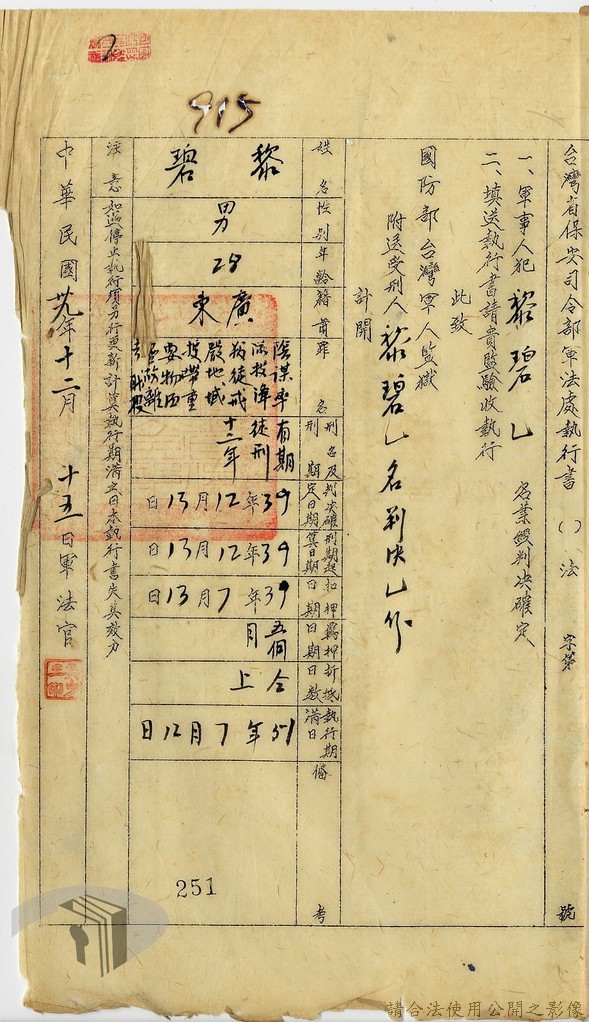 915
台灣省保安司令部軍法處執行書 ( ) 法 字第 號
一、軍事人犯 黎碧 乙 名業經判決確定
二、填送執行書請貴監驗收執行
此致
國防部台灣軍人監獄
附送受刑人 黎碧 乙 名判決乙份
計開
姓名 黎碧
性別 男
年齡 28
籍貫 廣東
罪名 陰謀率 叛徒 戒 嚴地域 投 帶重 要物品
刑名及刑期 有期徒刑十二年
判決確定日期 39年12月13日
刑期起算日期 39年12月13日
扣押日期 39年7月13日
羈押日期 五個月
折抵日數 仝上
執行期滿日 51年7月12日
備考
251
注意 如遇停止執行須另行更新計算執行期滿之日本執行書失其效力
中華民國卅九年十二月十五日軍法官
請合法使用公開之影像